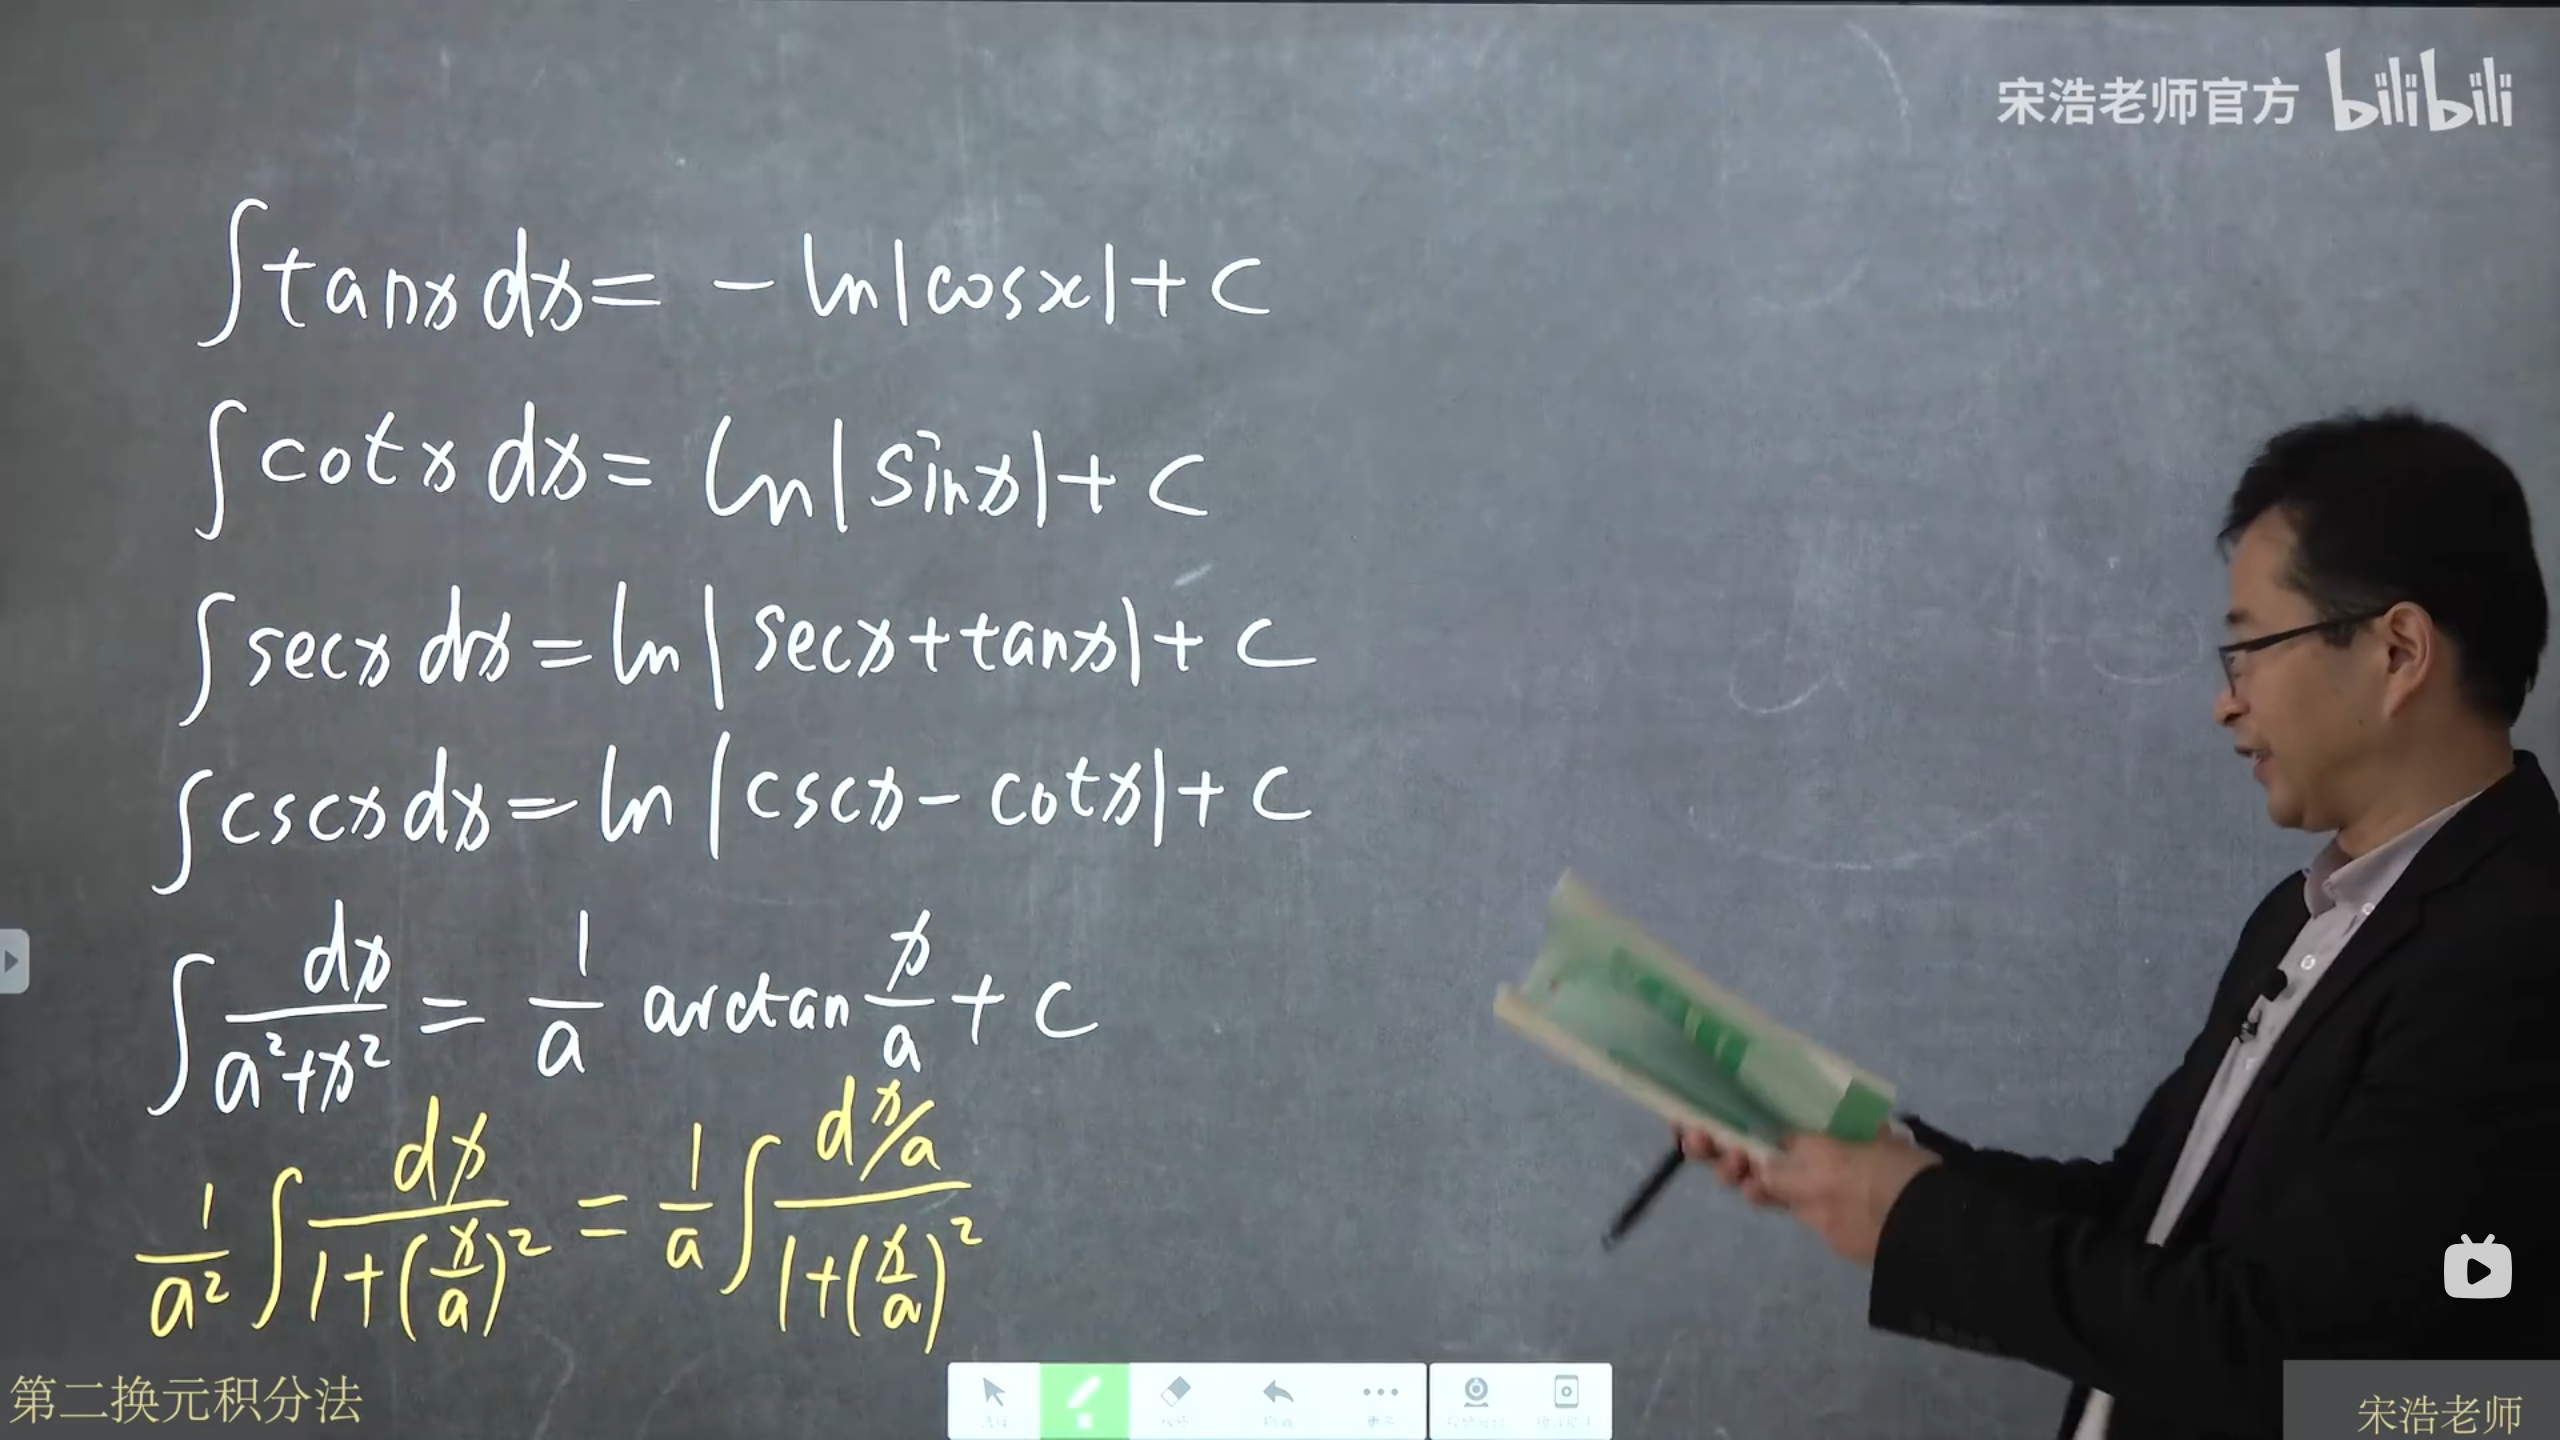 宋浩老师官方 bilibili
∫tanx dx = - ln|cosx| + C
∫cotx dx = ln|sinx| + C
∫secx dx = ln|secx+tanx| + C
∫cscx dx = ln|cscx - cotx| + C
∫dx/(a²+x²) = 1/a arctan x/a + C
1/a² ∫dx/(1+(x/a)²) = 1/a ∫d x/a/(1+(x/a)²)
第二换元积分法
更多
宋浩老师